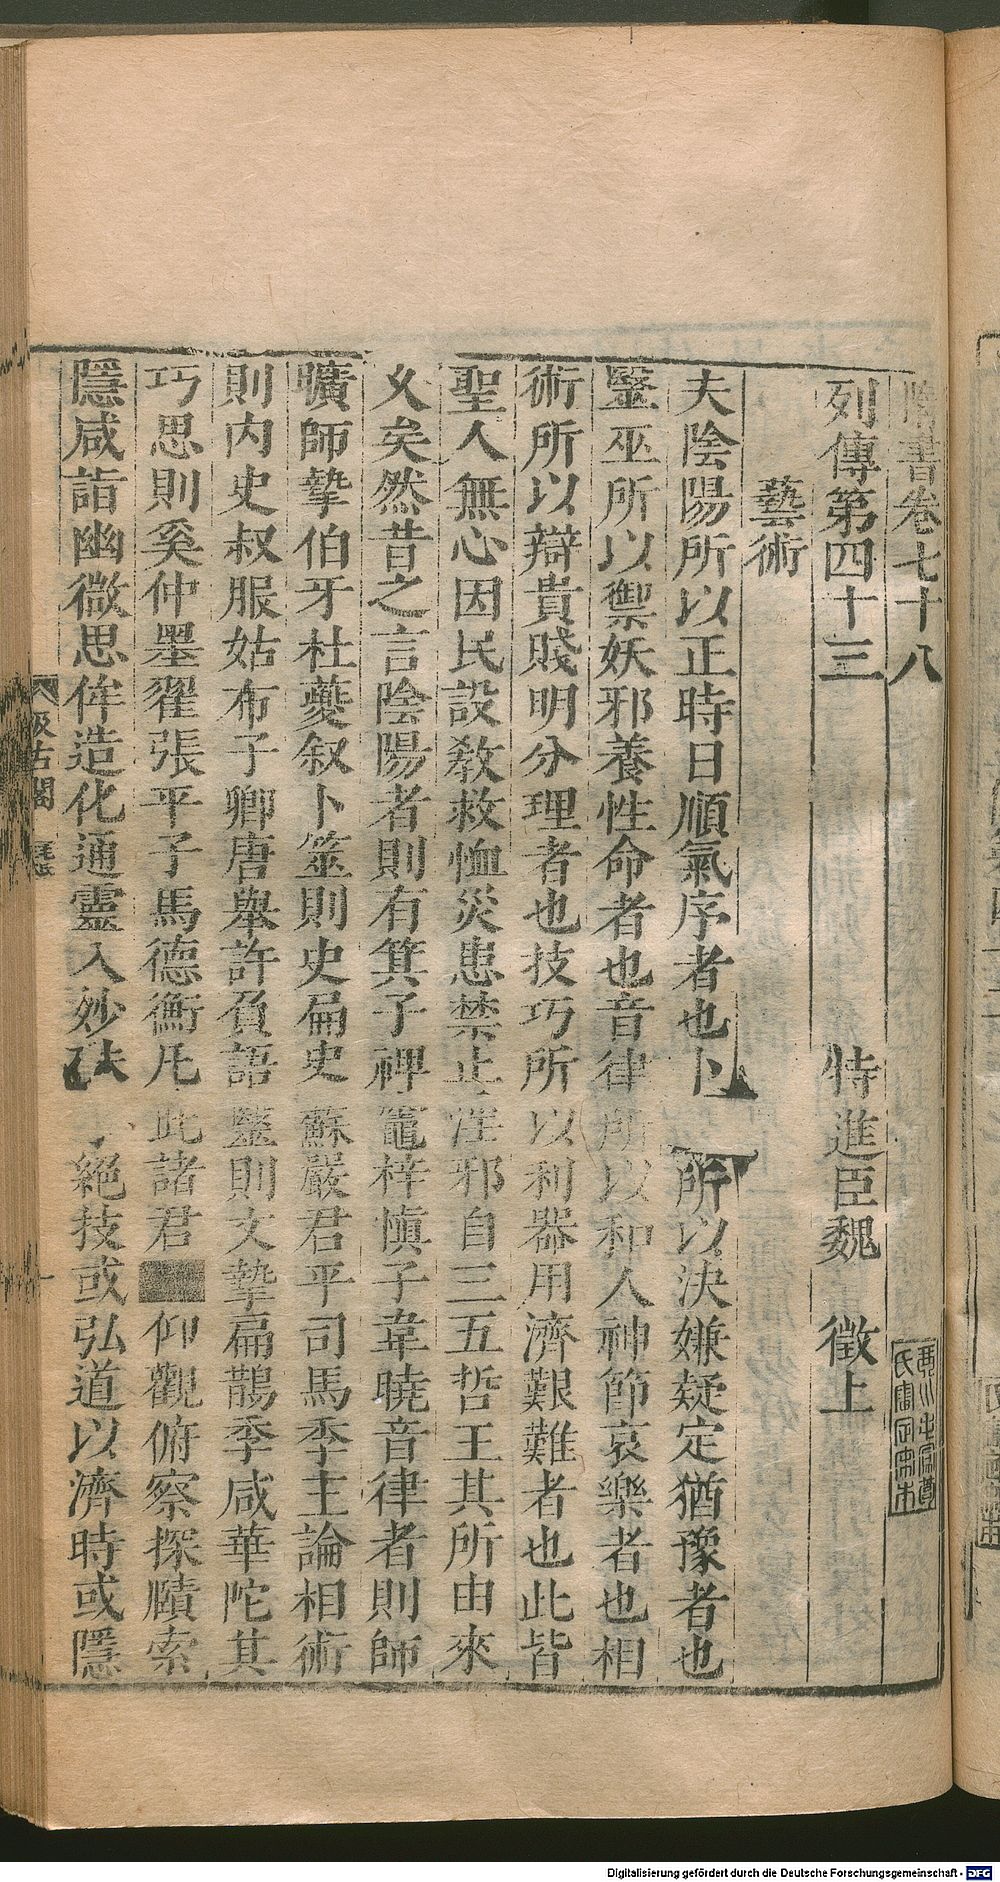 隋書卷七十八
列傳第四十三
特進臣魏　徵上
藝術
夫陰陽所以正時日順氣序者也卜 所以決嫌疑定猶豫者也
毉巫所以禦妖邪養性命者也音律所以和人神節哀樂者也相
術所以辯貴賤明分理者也技巧所以利器用濟艱難者也此皆
聖人無心因民設敎救恤災患禁止淫邪自三五哲王其所由來
乆矣然昔之言陰陽者則有箕子禆竈梓慎子韋曉音律者則師
曠師摯伯牙杜夔叙卜筮則史扁史蘇嚴君平司馬季主論相術
則内史叔服姑布子卿唐舉許負語毉則文摯扁鵲季咸華陀其
巧思則奚仲墨翟張平子馬德衡凡此諸君■仰觀俯察探賾索
隱咸詣幽微思侔造化通靈入妙 絕技或弘道以濟時或隱
汲古閣
Digitalisierung gefördert durch die Deutsche Forschungsgemeinschaft - DFG